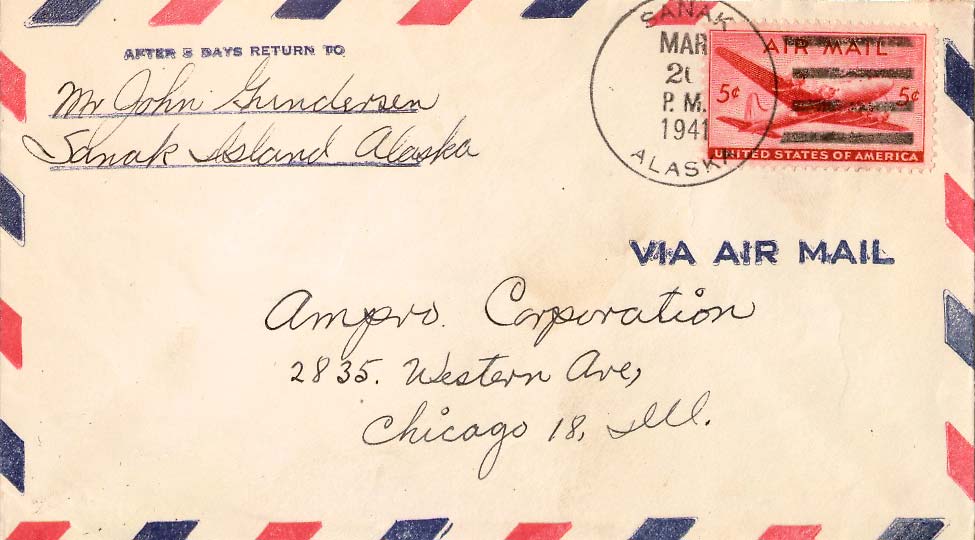 AFTER 5 DAYS RETURN TO
Mr John Gundersen
Sanak Island Alaska
SANAK
MAR
P. M.
1941
ALASKA
AIR MAIL
5¢ 5¢
UNITED STATES OF AMERICA
VIA AIR MAIL
Ampro. Corporation
2835. Western Ave,
Chicago 18, Ill.